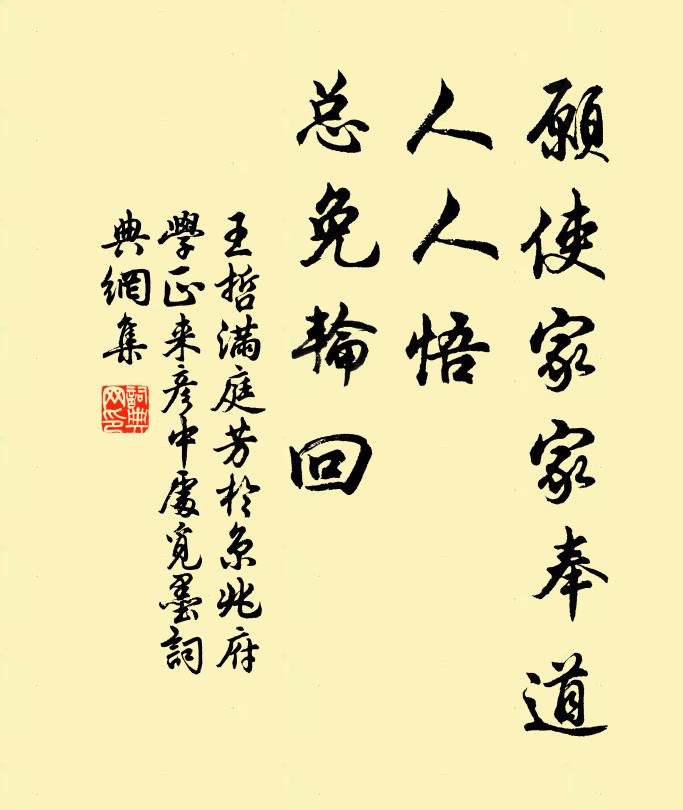 願使家家奉道
人人悟
总免輪回
王哲满庭芳於京兆府
學正来彦中處覓墨詞
典網集
詞典網印